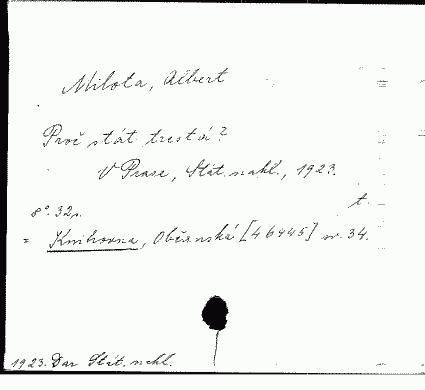 Milota, Albert
Proč stát trestá?
V Praze, Stát. nakl., 1923.
t.
8°. 32 s.
= Knihovna, Občanská [46445] sv. 34.
1923. Dar Stát. nakl.